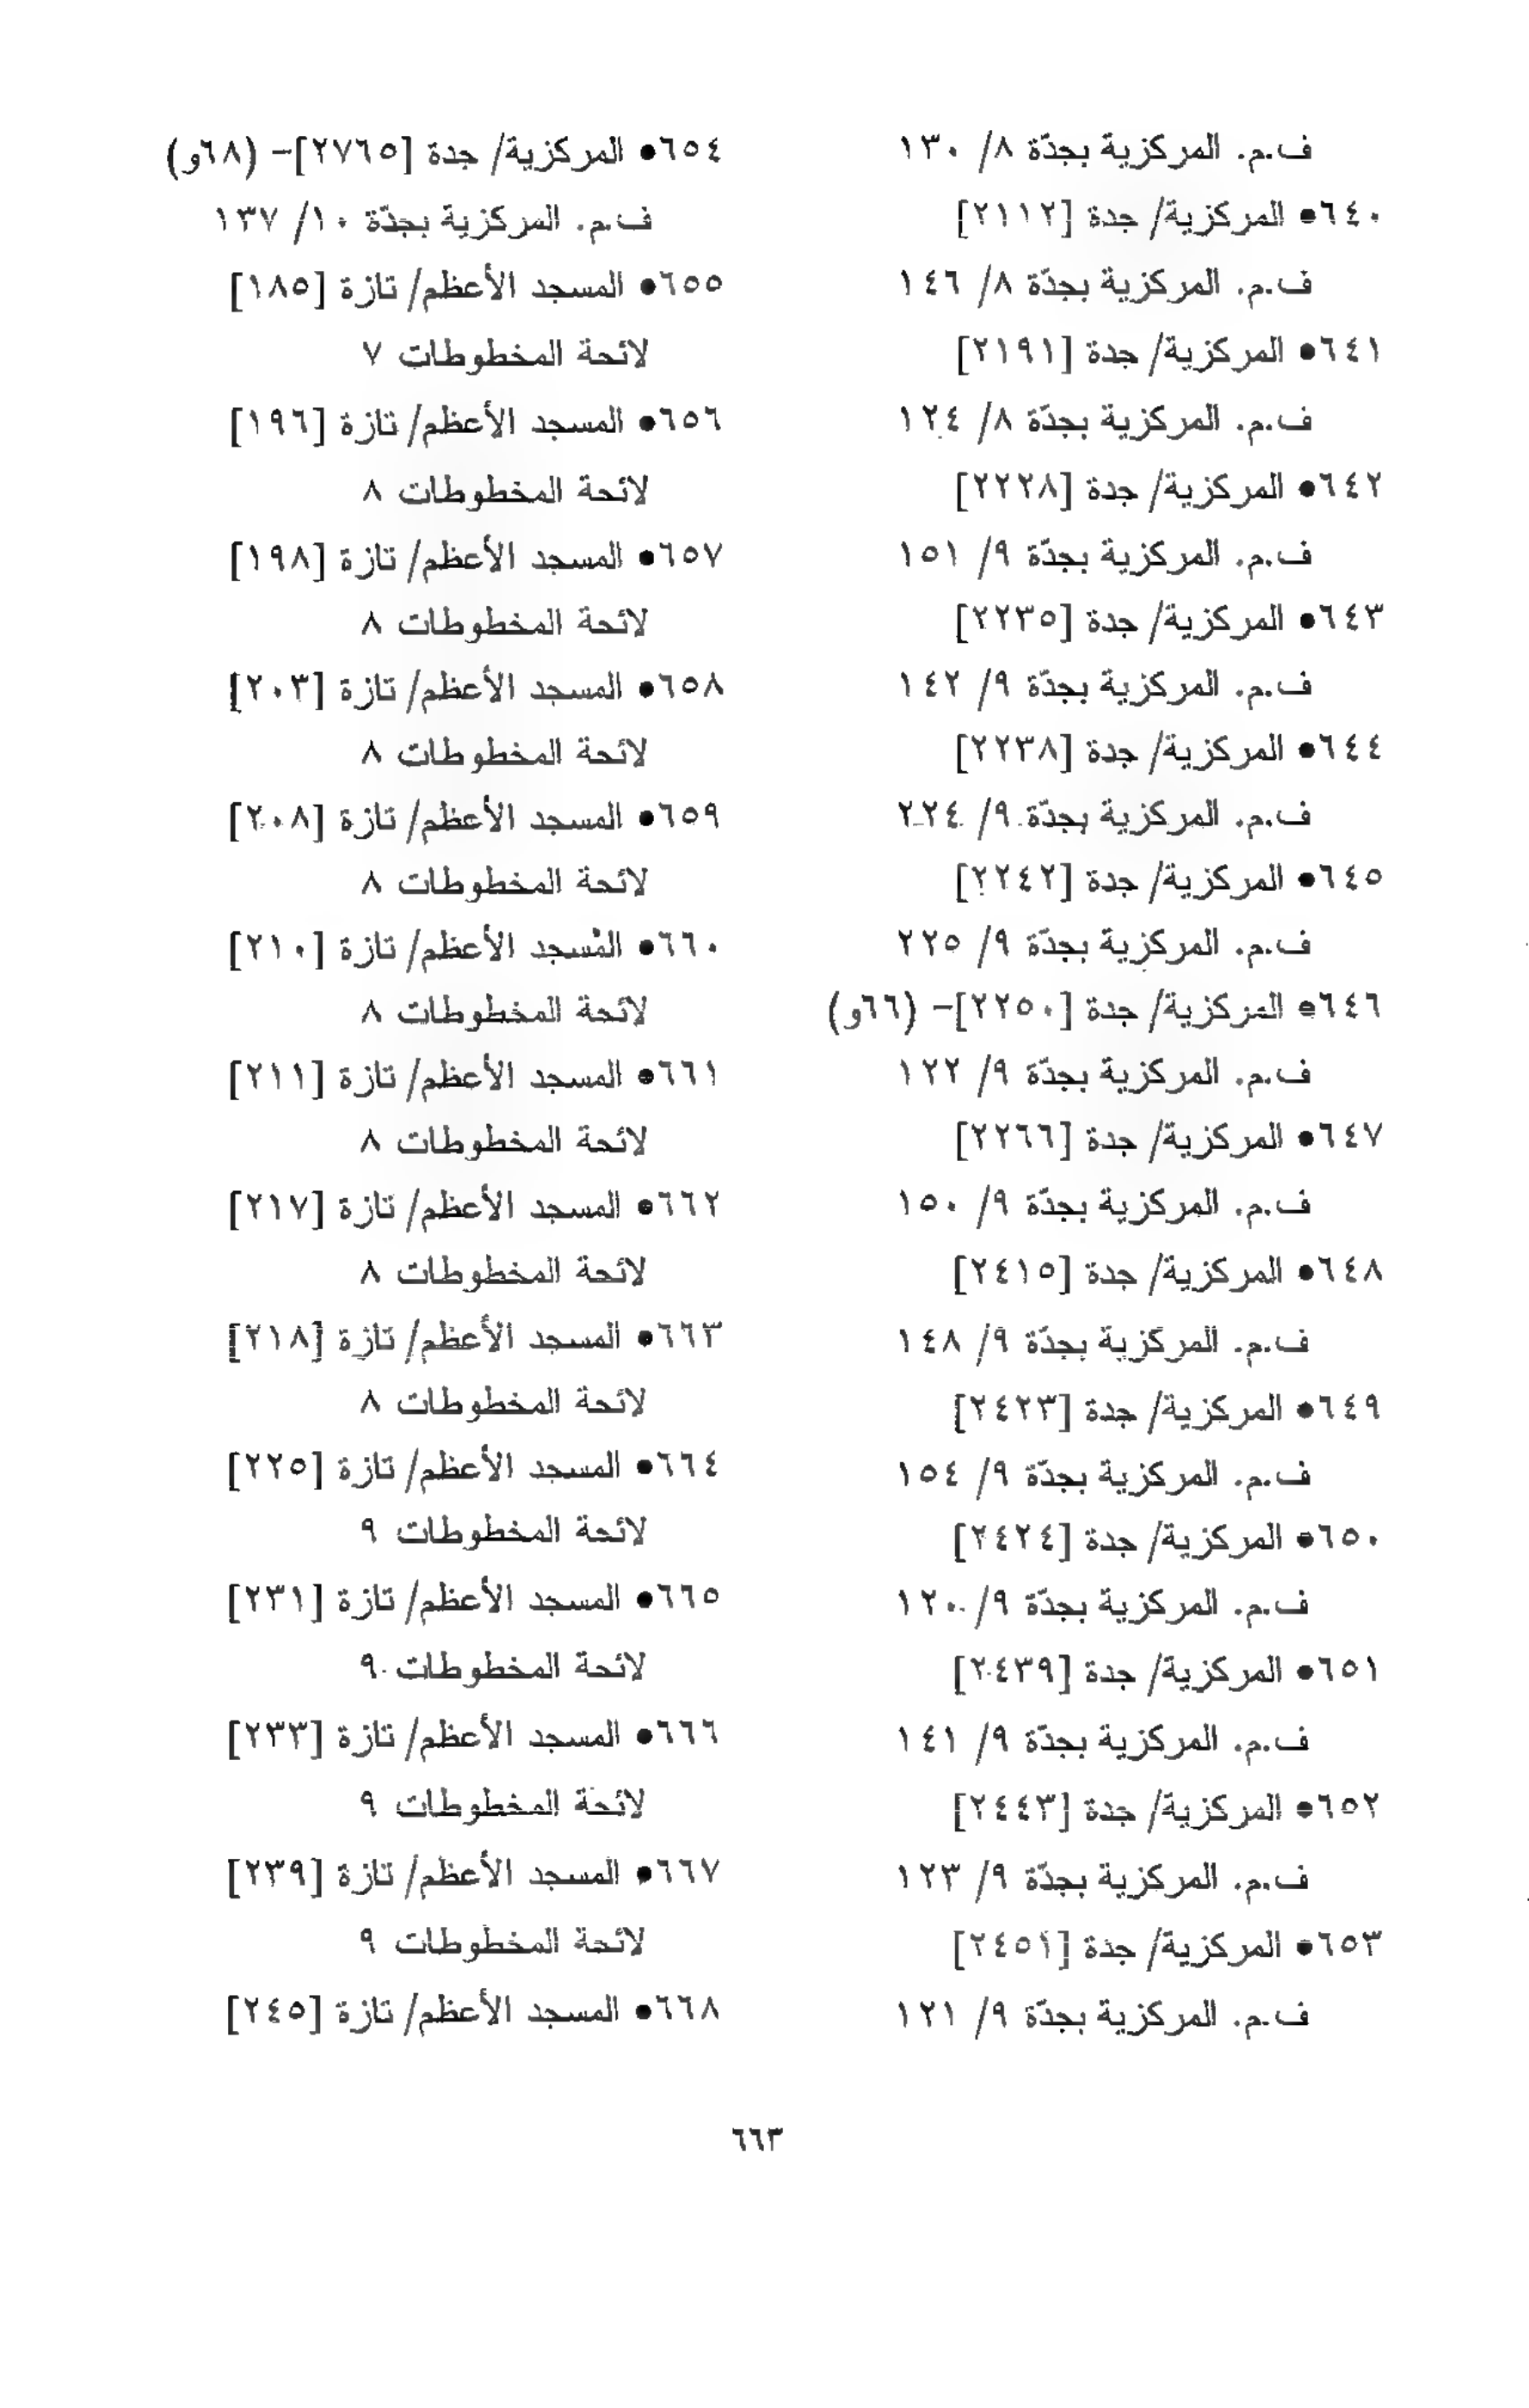 ف.م. المركزية بجدّة ٨/ ١٣٠
٦٤٠● المركزية/ جدة [٢١١٢]
ف.م. المركزية بجدّة ٨/ ١٤٦
٦٤١● المركزية/ جدة [٢١٩١]
ف.م. المركزية بجدّة ٨/ ١٢٤
٦٤٢● المركزية/ جدة [٢٢٢٨]
ف.م. المركزية بجدّة ٩/ ١٥١
٦٤٣● المركزية/ جدة [٢٢٣٥]
ف.م. المركزية بجدّة ٩/ ١٤٢
٦٤٤● المركزية/ جدة [٢٢٣٨]
ف.م. المركزية بجدّة ٩/ ٢٢٤
٦٤٥● المركزية/ جدة [٢٢٤٢]
ف.م. المركزية بجدّة ٩/ ٢٢٥
٦٤٦● المركزية/ جدة [٢٢٥٠]- (٦٦و)
ف.م. المركزية بجدّة ٩/ ١٢٢
٦٤٧● المركزية/ جدة [٢٢٦٦]
ف.م. المركزية بجدّة ٩/ ١٥٠
٦٤٨● المركزية/ جدة [٢٤١٥]
ف.م. المركزية بجدّة ٩/ ١٤٨
٦٤٩● المركزية/ جدة [٢٤٢٣]
ف.م. المركزية بجدّة ٩/ ١٥٤
٦٥٠● المركزية/ جدة [٢٤٢٤]
ف.م. المركزية بجدّة ٩/ ١٢٠
٦٥١● المركزية/ جدة [٢٤٣٩]
ف.م. المركزية بجدّة ٩/ ١٤١
٦٥٢● المركزية/ جدة [٢٤٤٣]
ف.م. المركزية بجدّة ٩/ ١٢٣
٦٥٣● المركزية/ جدة [٢٤٥١]
ف.م. المركزية بجدّة ٩/ ١٢١
٦٥٤● المركزية/ جدة [٢٧٦٥]- (٦٨و)
ف.م. المركزية بجدّة ١٠/ ١٣٧
٦٥٥● المسجد الأعظم/ تازة [١٨٥]
لائحة المخطوطات ٧
٦٥٦● المسجد الأعظم/ تازة [١٩٦]
لائحة المخطوطات ٨
٦٥٧● المسجد الأعظم/ تازة [١٩٨]
لائحة المخطوطات ٨
٦٥٨● المسجد الأعظم/ تازة [٢٠٣]
لائحة المخطوطات ٨
٦٥٩● المسجد الأعظم/ تازة [٢٠٨]
لائحة المخطوطات ٨
٦٦٠● المسجد الأعظم/ تازة [٢١٠]
لائحة المخطوطات ٨
٦٦١● المسجد الأعظم/ تازة [٢١١]
لائحة المخطوطات ٨
٦٦٢● المسجد الأعظم/ تازة [٢١٧]
لائحة المخطوطات ٨
٦٦٣● المسجد الأعظم/ تازة [٢١٨]
لائحة المخطوطات ٨
٦٦٤● المسجد الأعظم/ تازة [٢٢٥]
لائحة المخطوطات ٩
٦٦٥● المسجد الأعظم/ تازة [٢٣١]
لائحة المخطوطات ٩
٦٦٦● المسجد الأعظم/ تازة [٢٣٣]
لائحة المخطوطات ٩
٦٦٧● المسجد الأعظم/ تازة [٢٣٩]
لائحة المخطوطات ٩
٦٦٨● المسجد الأعظم/ تازة [٢٤٥]
٦٦٣